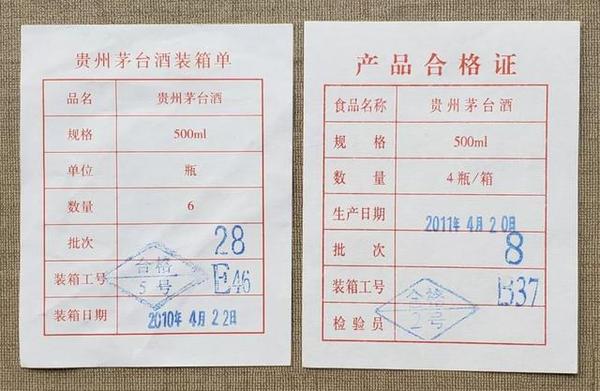 贵州茅台酒装箱单
品名 贵州茅台酒
规格 500ml
单位 瓶
数量 6
批次 28
装箱工号 E46
合格
5号
装箱日期 2010年4月22日
产品合格证
食品名称 贵州茅台酒
规格 500ml
数量 4瓶/箱
生产日期 2011年4月20日
批次 8
装箱工号 B37
合格
2号
检验员